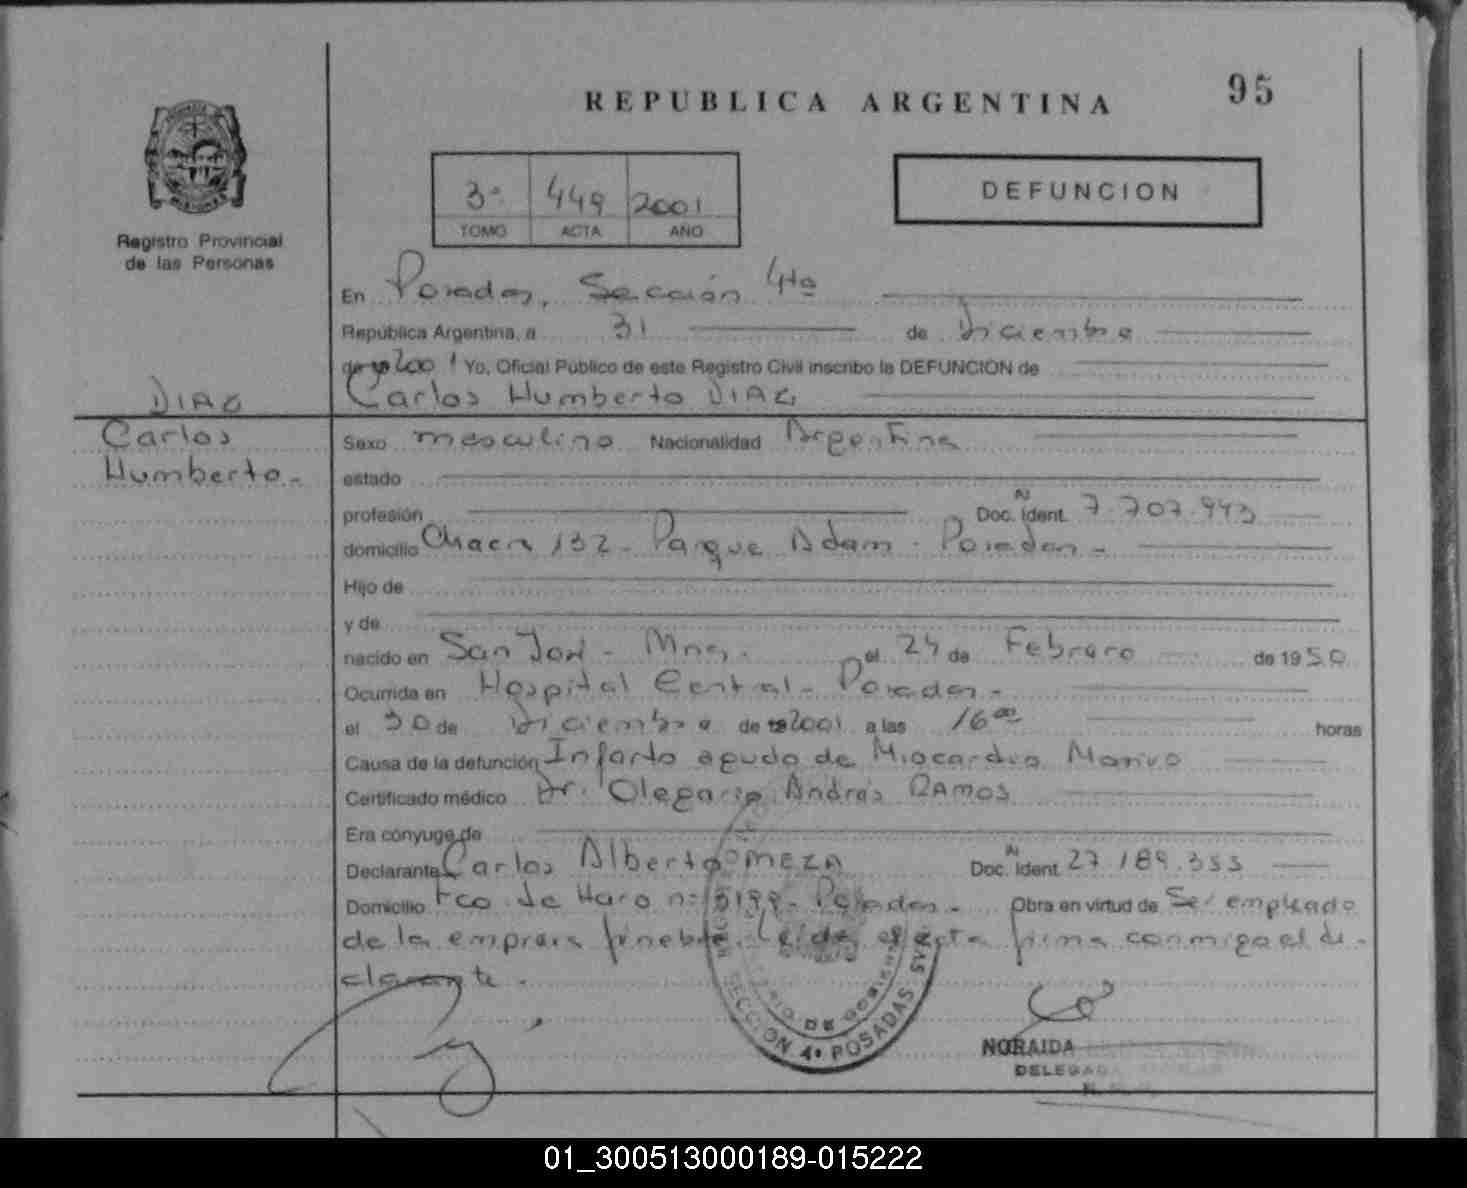 REPUBLICA ARGENTINA
95
3º 449 2001
TOMO ACTA AÑO
DEFUNCION
Registro Provincial
de las Personas
En Posadas, Sección 4ta
República Argentina, a 31 de Diciembre
2001 Yo, Oficial Público de este Registro Civil inscribo la DEFUNCION de
Carlos Humberto DIAZ
DIAZ
Carlos
Humberto.-
Sexo masculino Nacionalidad Argentina
estado
profesión Doc. Ident. N 7.707.943
domicilio Chacra 132 - Parque Adam - Posadas -
Hijo de
y de
nacido en San José - Mnes. el 24 de Febrero de 1950
Ocurrida en Hospital Central - Posadas -
el 30 de Diciembre de 2001 a las 16 00 horas
Causa de la defunción Infarto agudo de Miocardio Masivo
Certificado médico Dr. Olegario Andrés RAMOS
Era cónyuge de
Declarante Carlos Alberto MEZA Doc. Ident. N 27.189.353
Domicilio Fco. de Haro nº 5199 - Posadas - Obra en virtud de Ser empleado
de la empresa fúnebre. Leída el acta firma conmigo el de-
clarante.-
SECCION 4ª POSADAS
DE
NORAIDA
DELEGADA
01_300513000189-015222